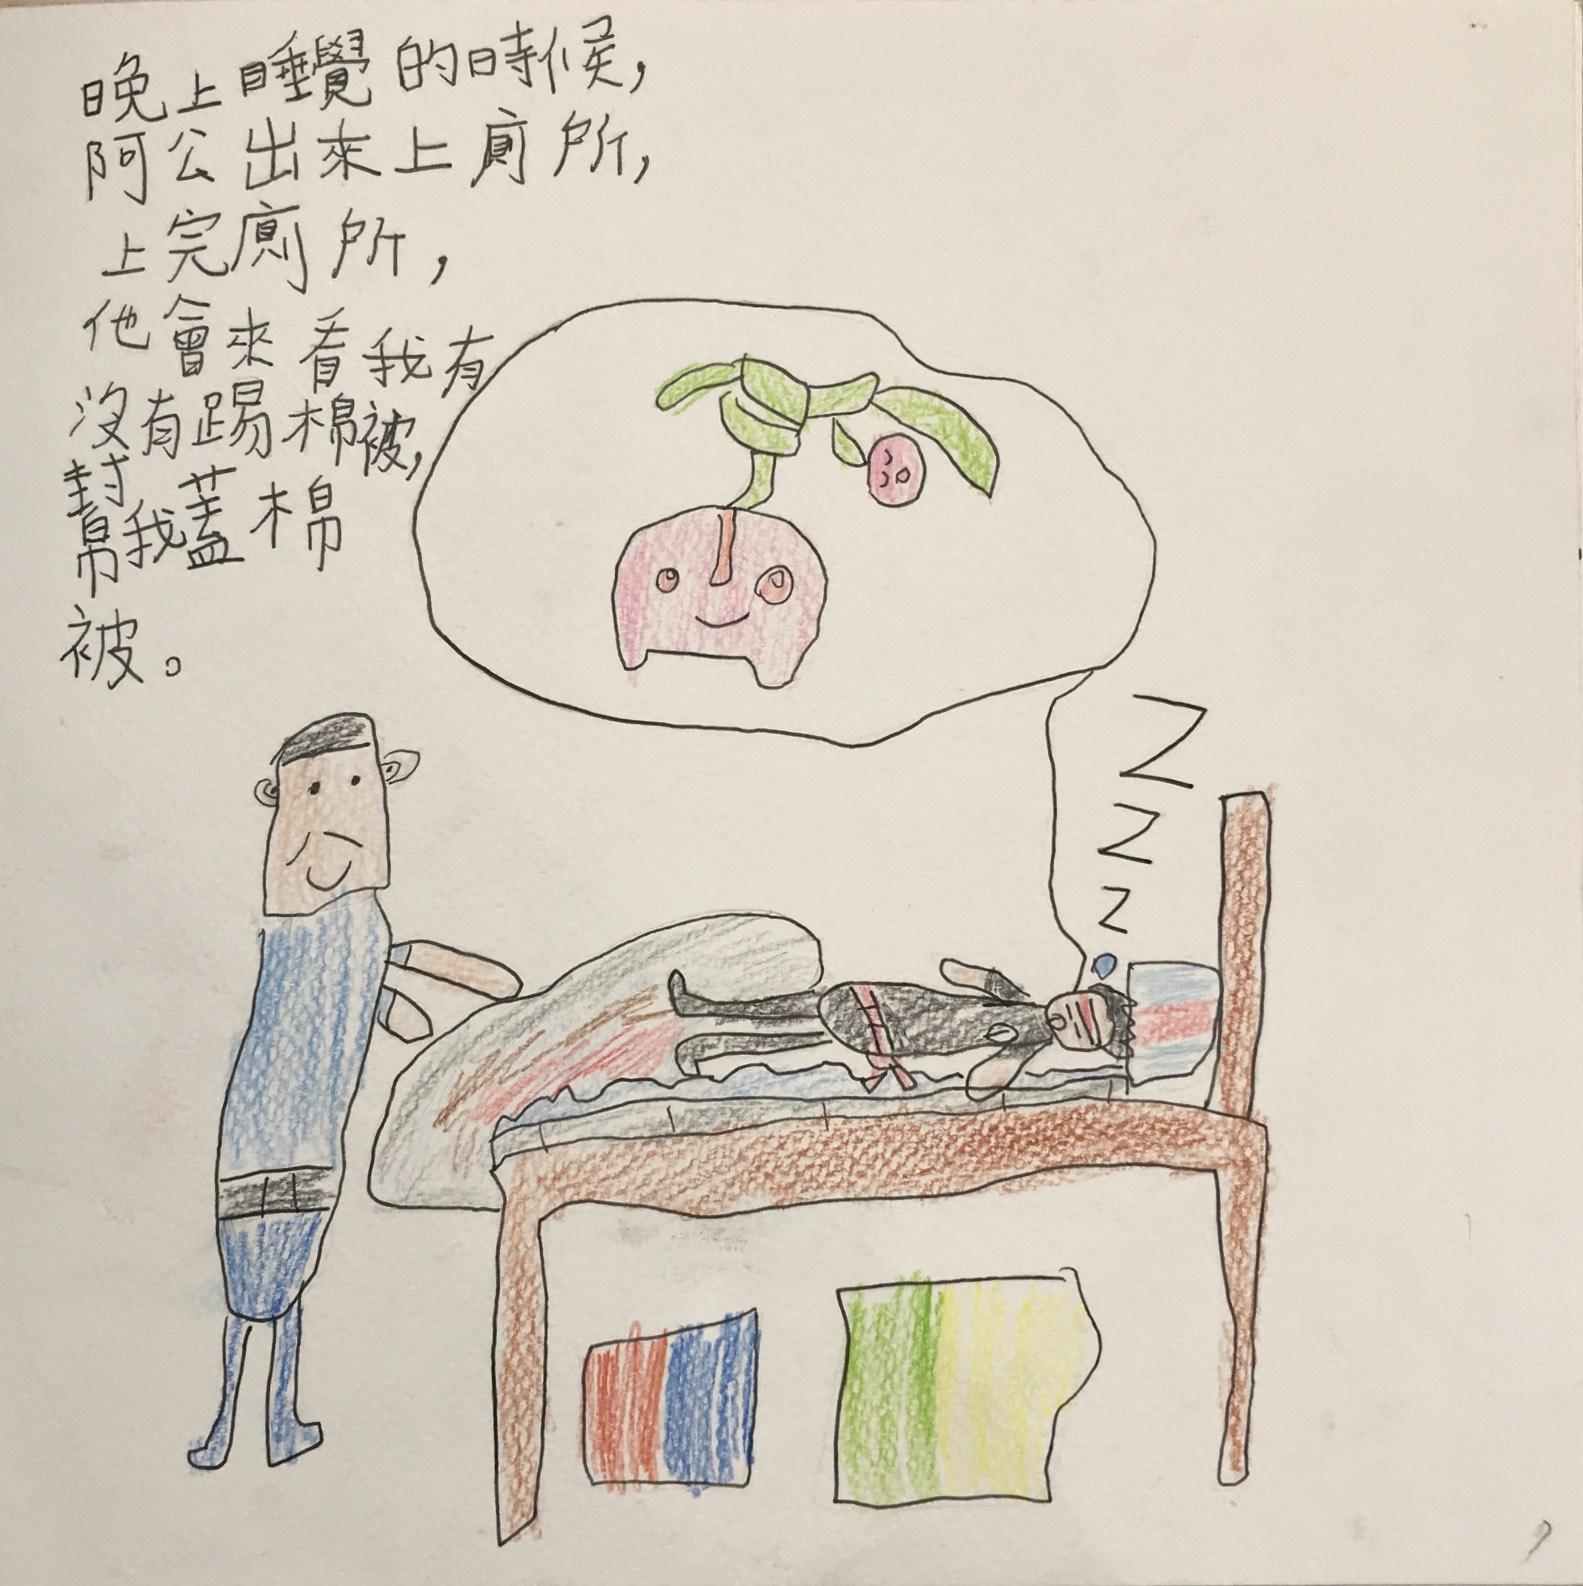 晚上睡覺的時候，
阿公出來上廁所，
上完廁所，
他會來看我有
沒有踢棉被，
幫我蓋棉
被。
Z
Z
Z